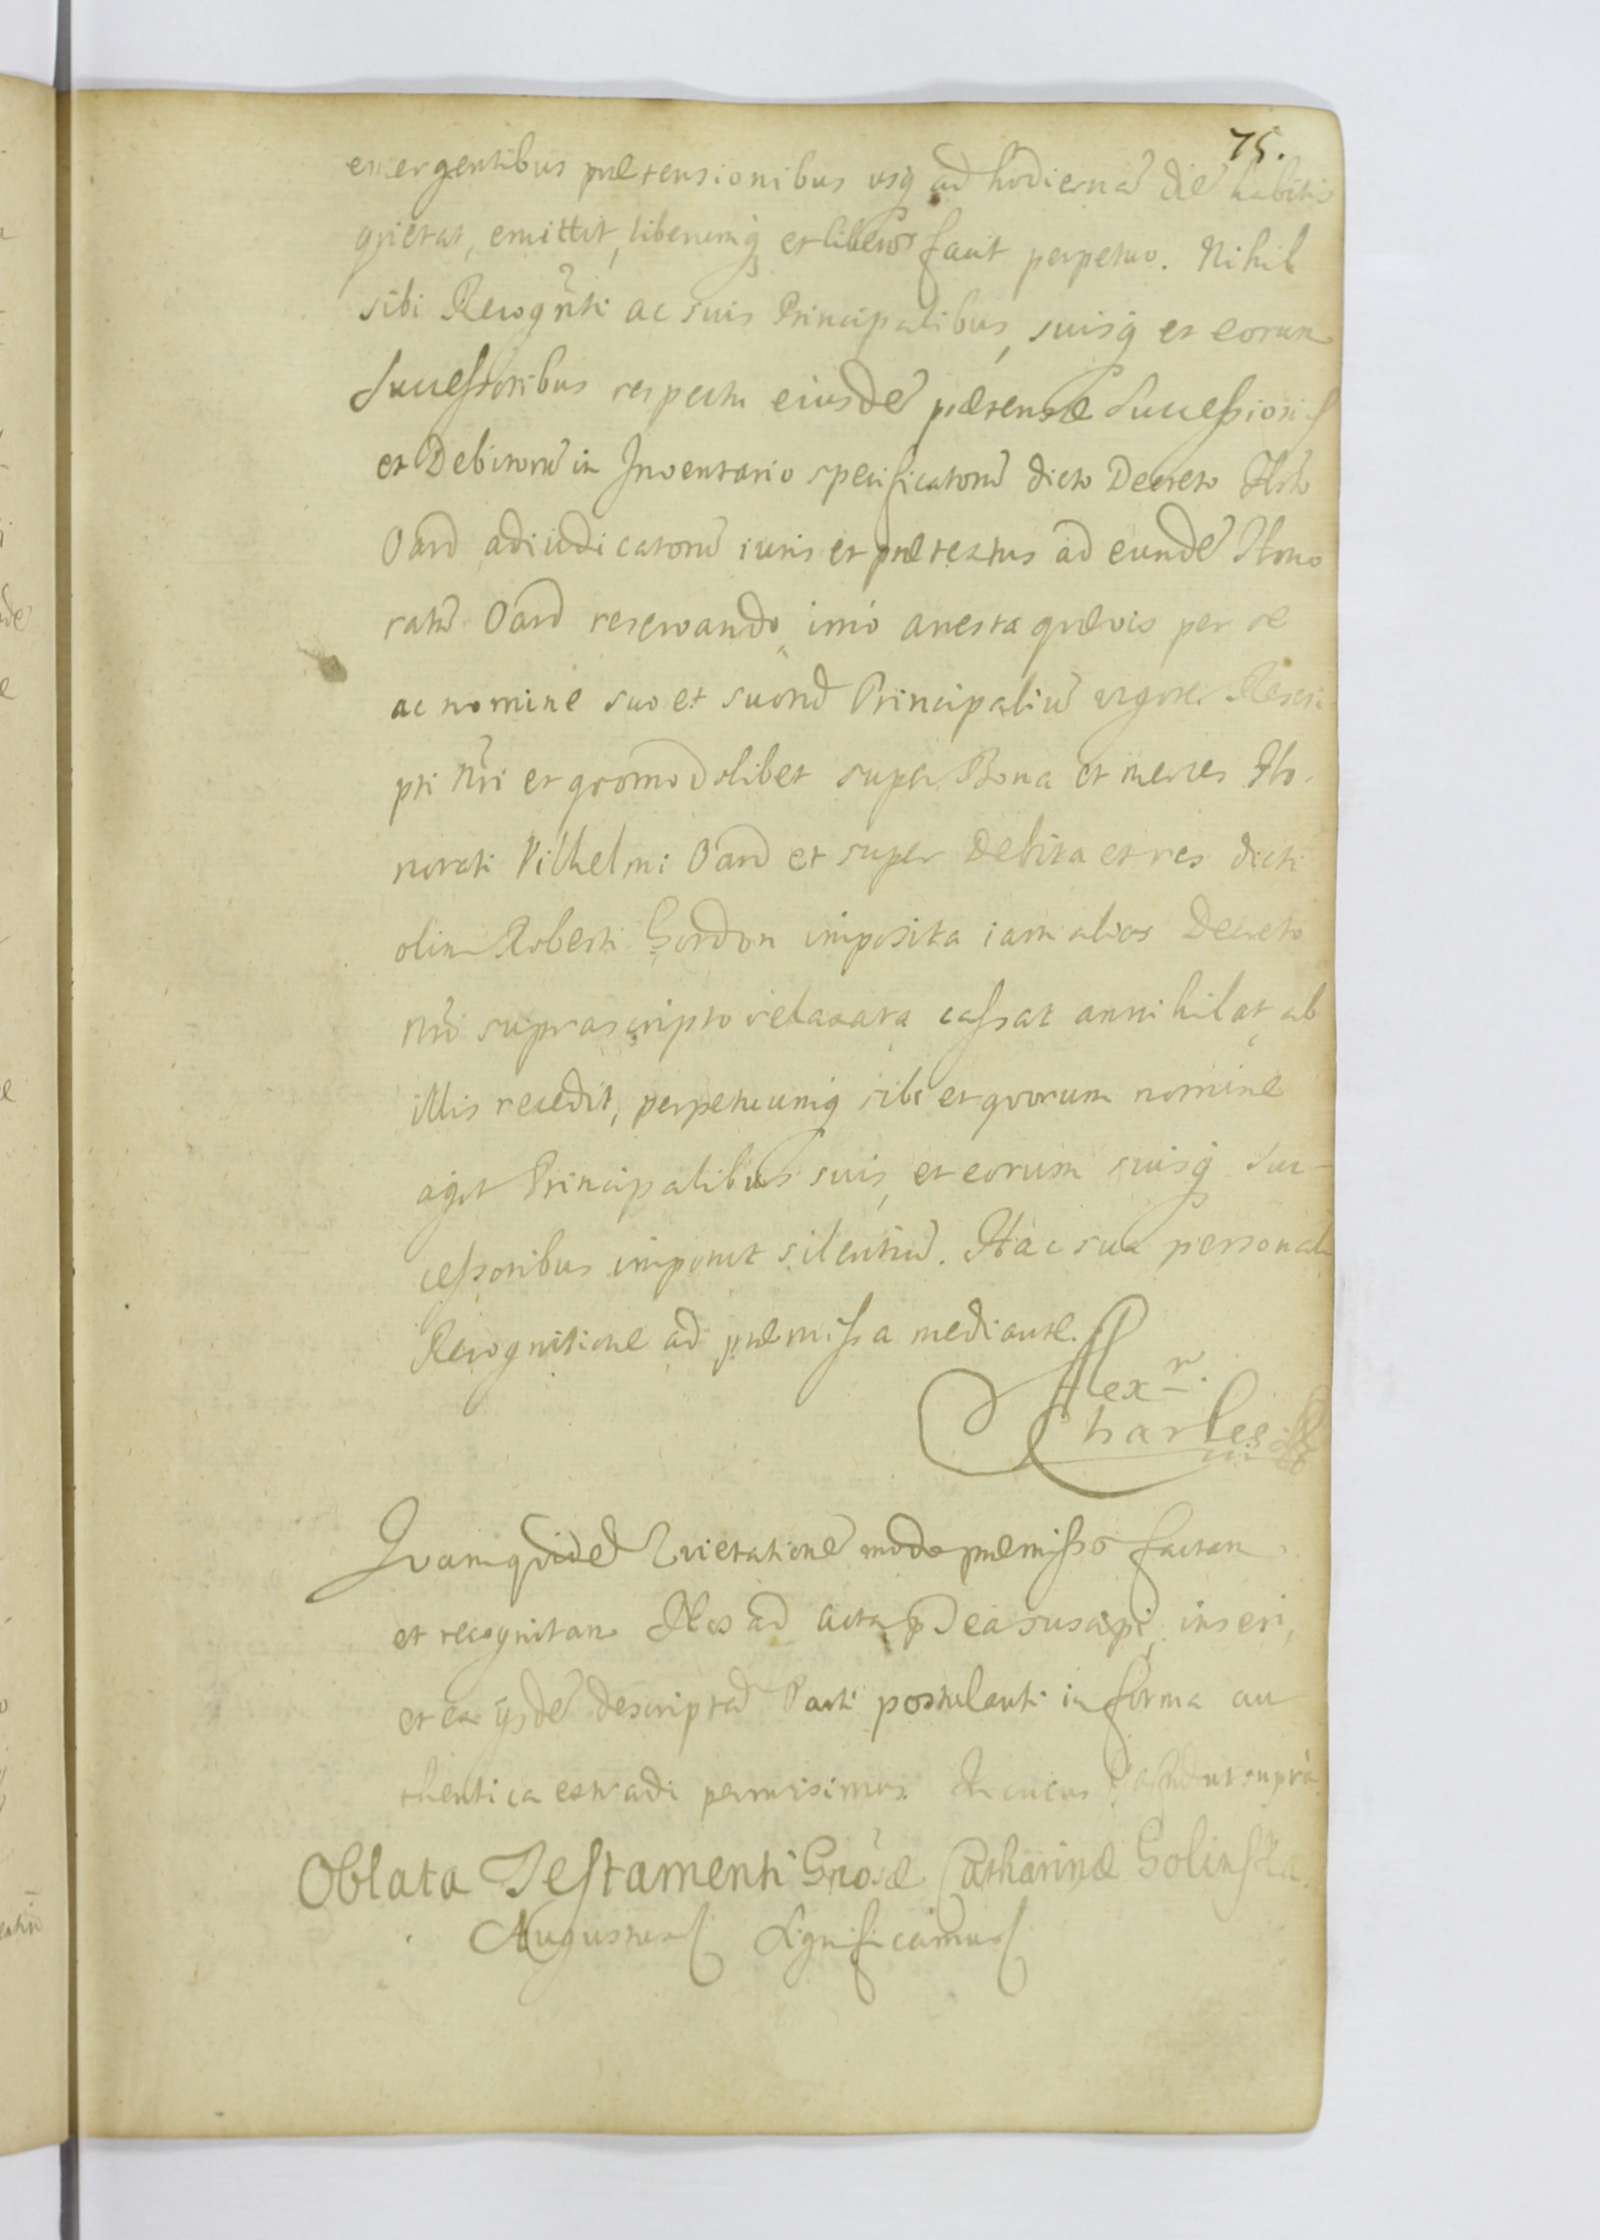 75.
emergentibus prætensionibus usq ad hodiernā diē habitis
qvietat, emittit, liberumq et liberos facit perpetuo. Nihil
sibi Recogn̄ti ac suis Principalibus, suisq et eorum
Successoribus respectu eiusdē prætensæ Successionis
et Debitorū in Inventario specificatorū dicto Decreto
Oard adiudicatorū iuris et prætextus ad eundē Hono
ratū Oard reservando, imo arresta qvævis per se
ac nomine suo et suorū Principaliū vigore Rescri
pti Nr̄i et qvomodolibet super Bona et merces Ho-
norati Vilhelmi Oard et super Debita et res dicti
olim Roberti Gordon imposita iam alias Decreto
Nr̄o suprascripto relaxata cassat annihilat, ab
illis recedit, perpetuumq sibi et qvorum nomine
agit Principalibus suis, et eorum suisq Suc-
cessoribus imponit silentiū. Hac sua personali
Recognitione ad præmissa mediante.
Alexr.
Charles
Qvam qvidē Qvietationē modo præmisso factam
et recognitam Nos ad Acta pd̄ea suscipi, inseri,
et ex ijsdē descriptā Parti postulanti in forma au
thentica extradi permisimus. ut supra.
Oblata Testamenti Gnōsæ Catharinæ Golinska.
Augustus Significamus